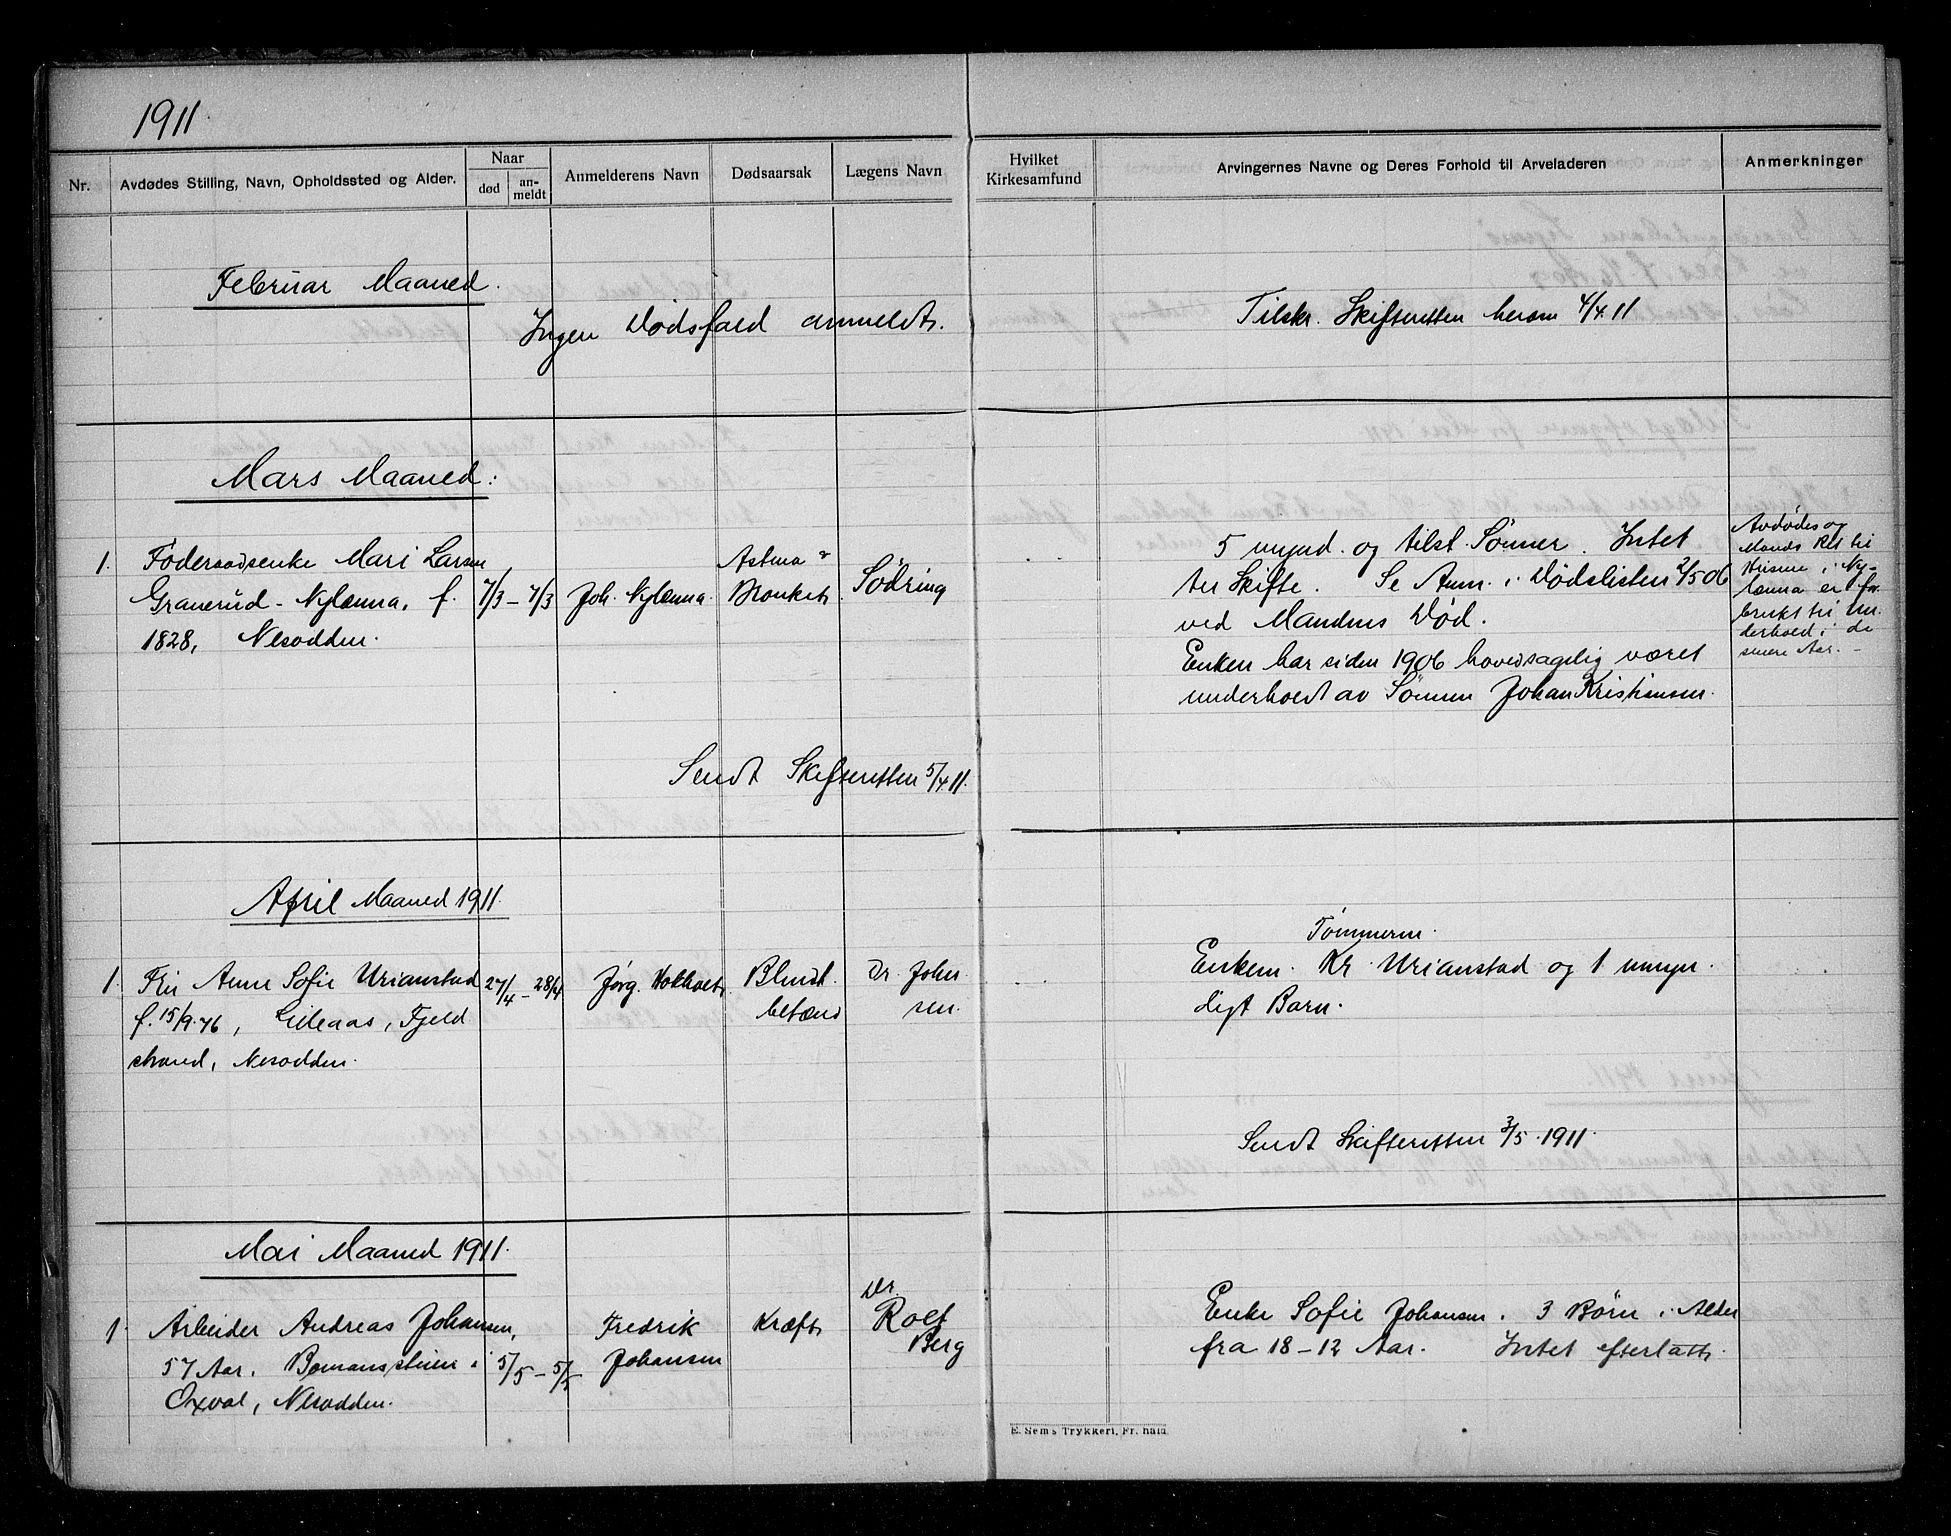 1911.
Nr.
Avdødes Stilling, Navn, Opholdssted og Alder.
Naar
død
an-
meldt
Anmelderens Navn
Dødsaarsak
Lægens Navn
Hvilket
Kirkesamfund
Arvingernes Navne og Deres Forhold til Arveladeren
Anmerkninger
Februar Maaned.
Ingen Dødsfald anmeldt.
Tilskr. Skifteretten herom 4/4 11
Mars Maaned:
1. Føderaadsenke Mari Larsen
Granerud - Nylænna, f.
1828, Nesodden.
7/3 - 7/3
Joh. Nylænna
Astma &
Bronkit
Södring
5 mynd. og tilst. Sønner. Intet
til Skifte. Se Anm. i Dødslisten 2/5 06
ved Mandens Død.
Enken har siden 1906 hovedsagelig været
underholdt av Sønnen Johan Kristiansen.
Avdødes og
Mands Ret til
Husene i Ny-
lænna er for-
brukt til Un-
derhold i de
senere Aar. -
Sendt Skifteretten 5/4 11.
April Maaned 1911.
1. Fru Anne Sofie Urianstad
f. 15/9 76, Lilleaas, Fjeld
strand, Nesodden.
27/4 - 28/4
Jørg. Hokholt
Blindt.
betænd
Dr. Johan
sen.
Tømmerm.
Enkem. Kr. Urianstad og 1 umyn
digt Barn.
Sendt Skifteretten 3/5 1911.
Mai Maaned 1911.
1 Arbeider Andreas Johansen,
57 Aar. Bomansstuen i
Oxval, Nesodden.
5/5 - 5/5
Fredrik
Johansen
Kræft
Dr.
Rolf
Berg
Enke Sofie Johansen. 3 Børn i Alder
fra 18-12 Aar. Intet efterlatt.
E. Sems Trykkeri, Fr.hald